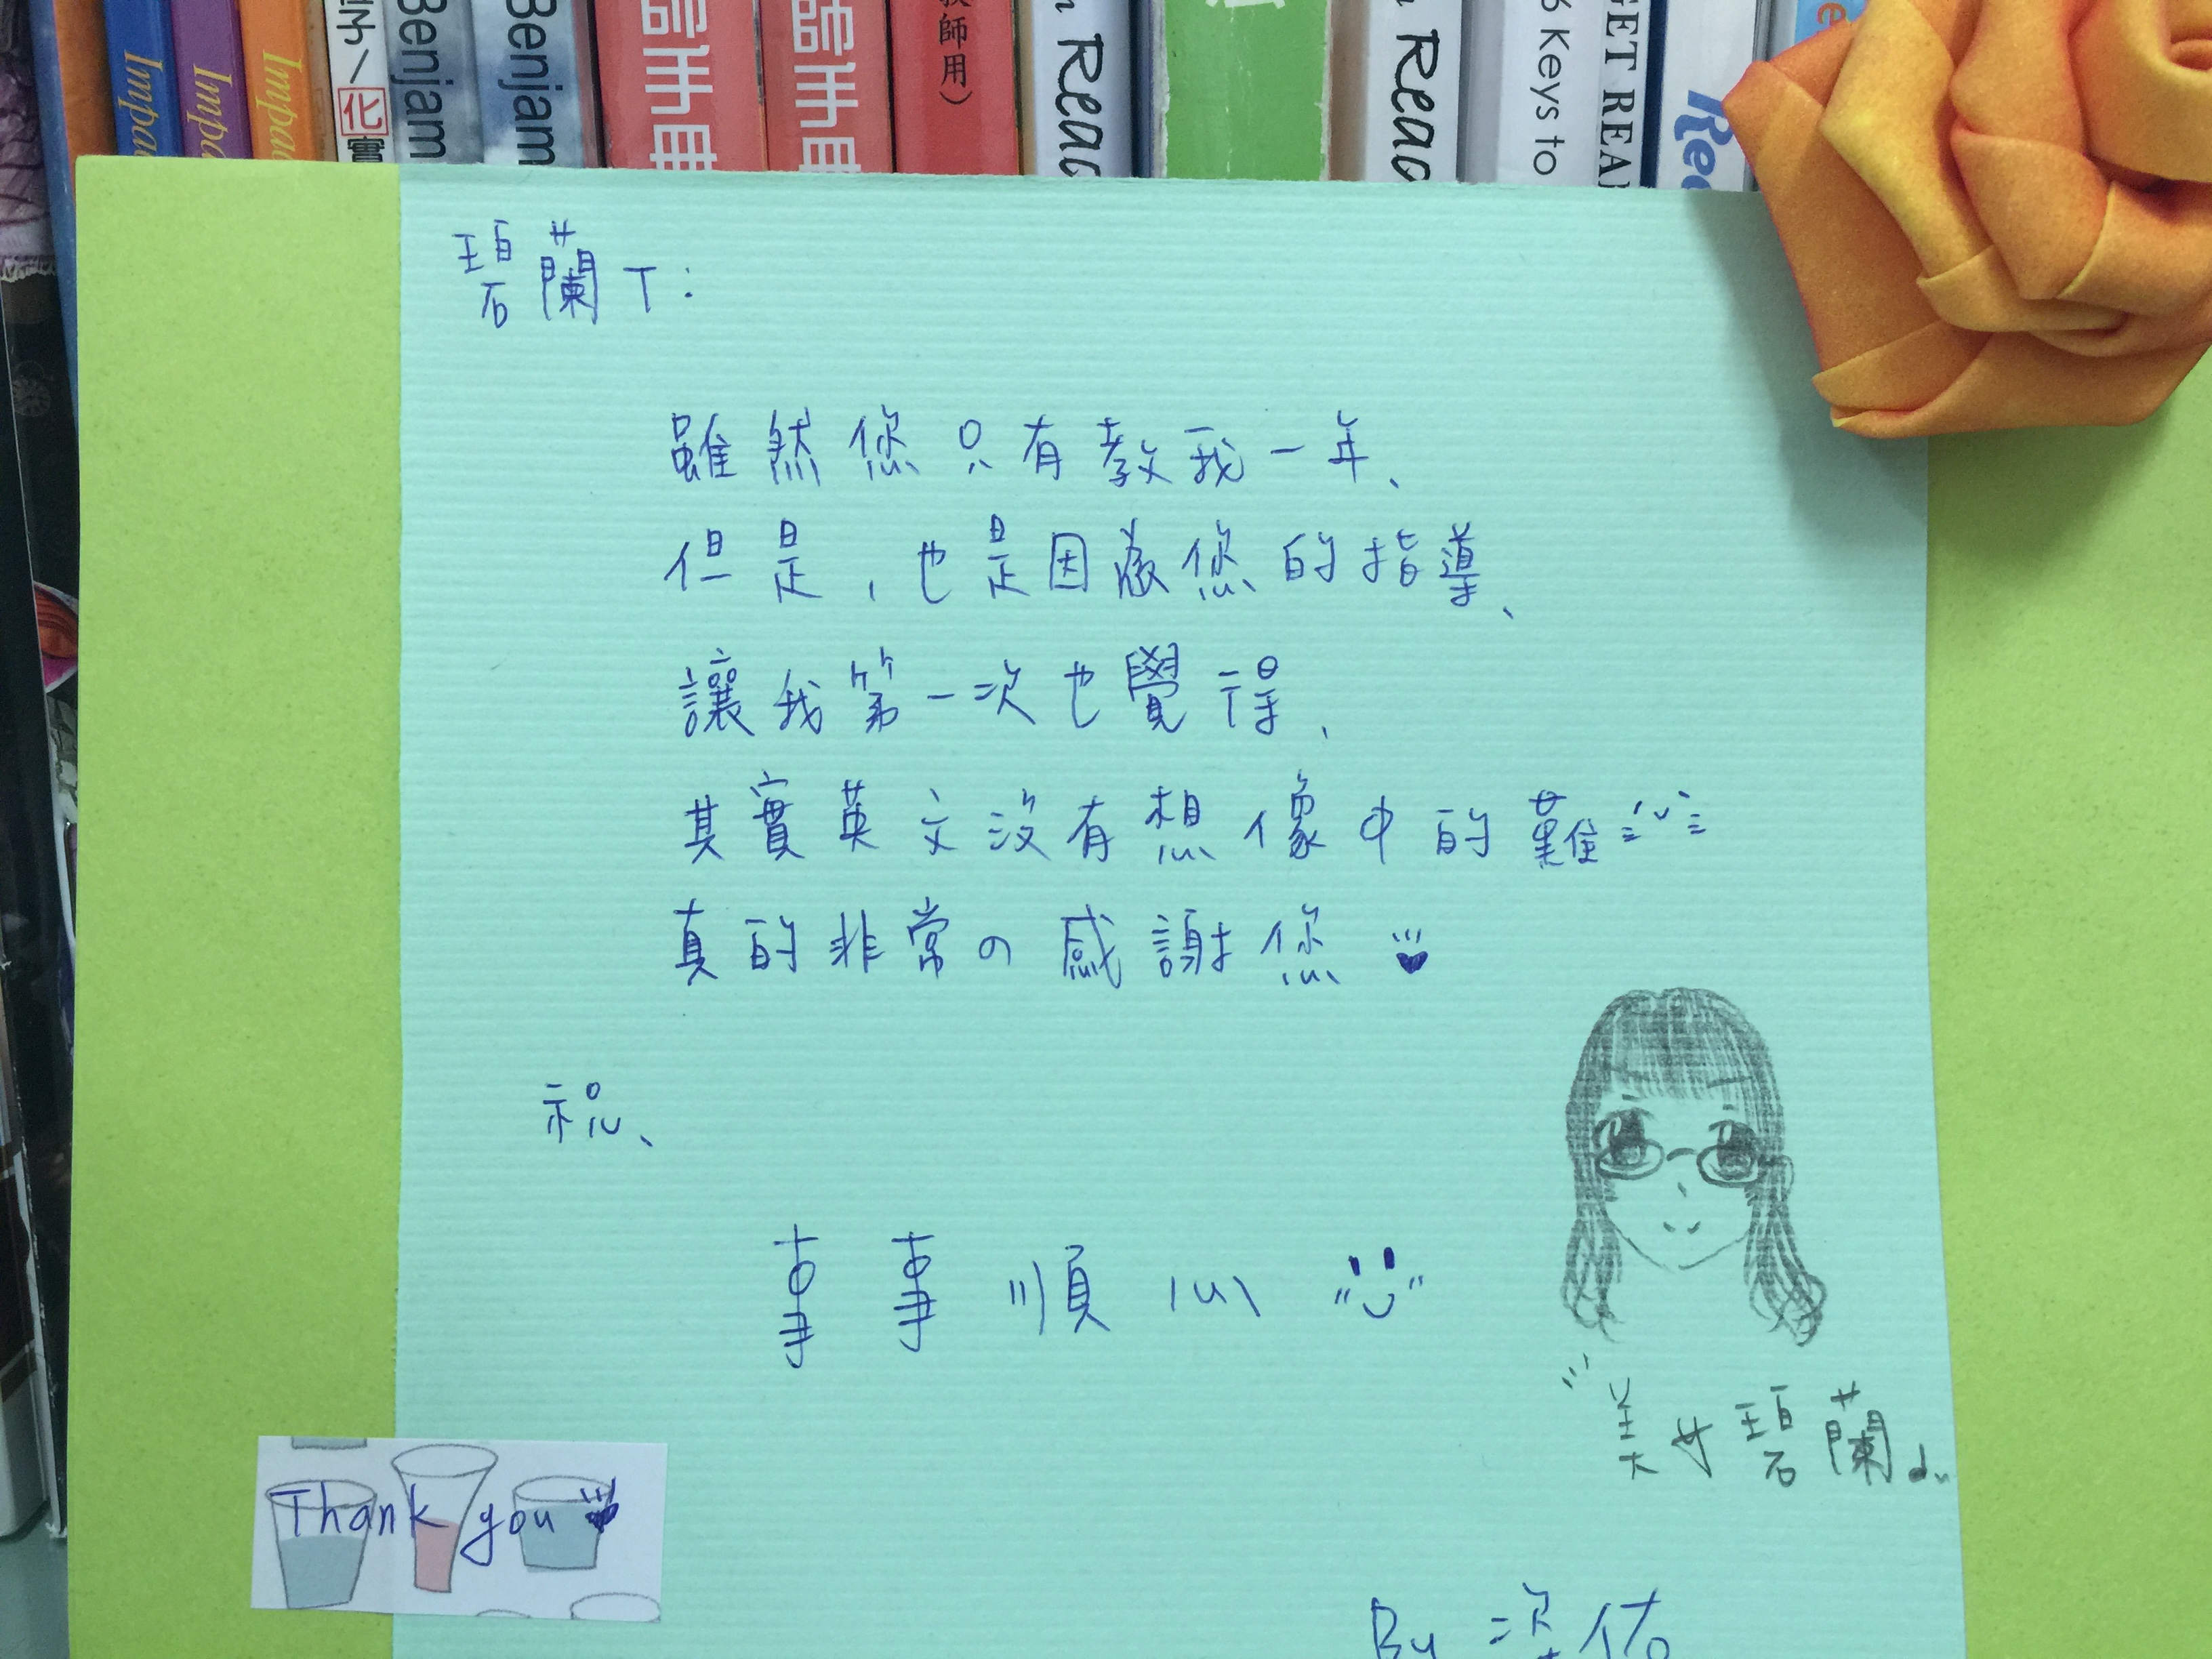 Impac
Impa
Impac
化
Benjam
Benjam
教師用）
Reac
Reac
6 Keys to
GET REA
Rea
碧蘭T：
雖然您只有教我一年、
但是，也是因為您的指導、
讓我第一次也覺得、
其實英文沒有想像中的難
真的非常の感謝您
祝、
事事順心
美女碧蘭
Thank you
By